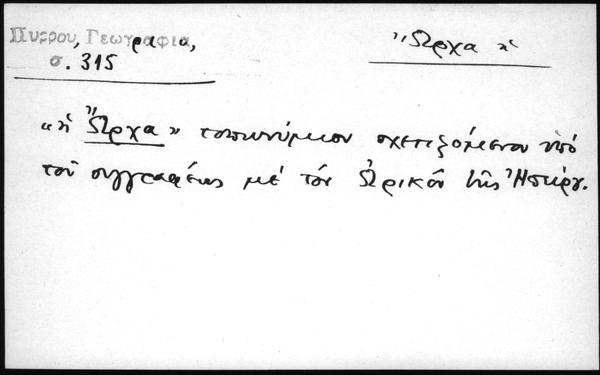 Πυρρου, Γεωγραφια,
σ. 315
Ὤρχα ἡ
«ἡ Ὤρχα» τοπωνύμιον σχετιζόμενον ὑπὸ
τοῦ συγγραφέως μὲ τὸν Ὠρικὸν τῆς Ἠπείρου.